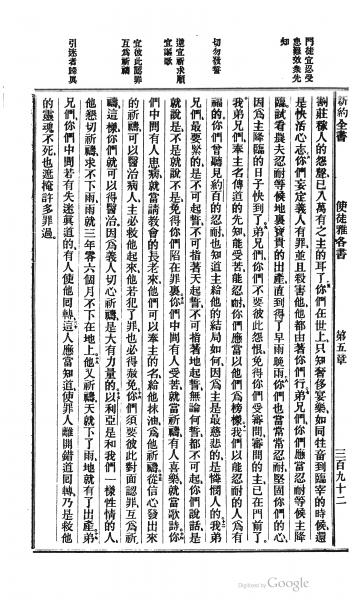 新約全書 使徒雅各書 第五章 三百九十二
門徒宜忍受
患難效眾先
知
切勿發誓
遭宜祈求順
宜謳歌
宜彼此認罪
互爲祈禱
引迷者歸眞
割莊稼人的怨聲、已入萬有之主的耳了、你們在世上、只知奢侈宴樂、如同牲畜到臨宰的時候、還
是快活心志、你們妄定義人有罪、並且殺害他、他都由著你們行、弟兄們、你們應當忍耐等候主降
臨、試看農夫忍耐等候地裏寶貴的出產、直到得了早雨晚雨、你們也當常常忍耐、堅固你們的心、
因爲主降臨的日子快到了、弟兄們、你們不要彼此怨恨、免得你們受審問、審問的主已在門前了、
我弟兄們、奉主名傳道的先知、能受苦、能忍耐、你們應當以他們爲榜樣、我們以能忍耐的人爲有
福的、你們曾聽見約百的忍耐、也知道主給他的結局如何、因爲主是最慈悲的、是憐憫人的、我弟
兄們、最要緊的是不可起誓、不可指著天起誓、不可指著地起誓、無論何誓、都不可起、你們說話、是
就說是、不是就說不是、免得你們陷在罪裏、你們中間有人受苦、就當祈禱、有人喜樂、就當歌詩、你
們中間有人患病、就當請教會的長老來、他們可以奉主的名、給他抹油、爲他祈禱、從信心發出來
的祈禱、可以醫治病人、主必救他起來、他若犯了罪、也必得赦免、你們須要彼此對面認罪、互爲祈
禱、這樣、你們就可以得醫治、因爲義人切心祈禱、是大有力量的、以利亞是和我們一樣性情的人、
他懇切祈禱、求不下雨、雨就三年零六個月不下在地上、他又祈禱、天就下了雨、地就有了出產、弟
兄們、你們中間若有失迷眞道的、有人使他回轉、這人應當知道使罪人離開錯道回轉、乃是救他
的靈魂不死、也遮掩許多罪過。
Digitized by Google